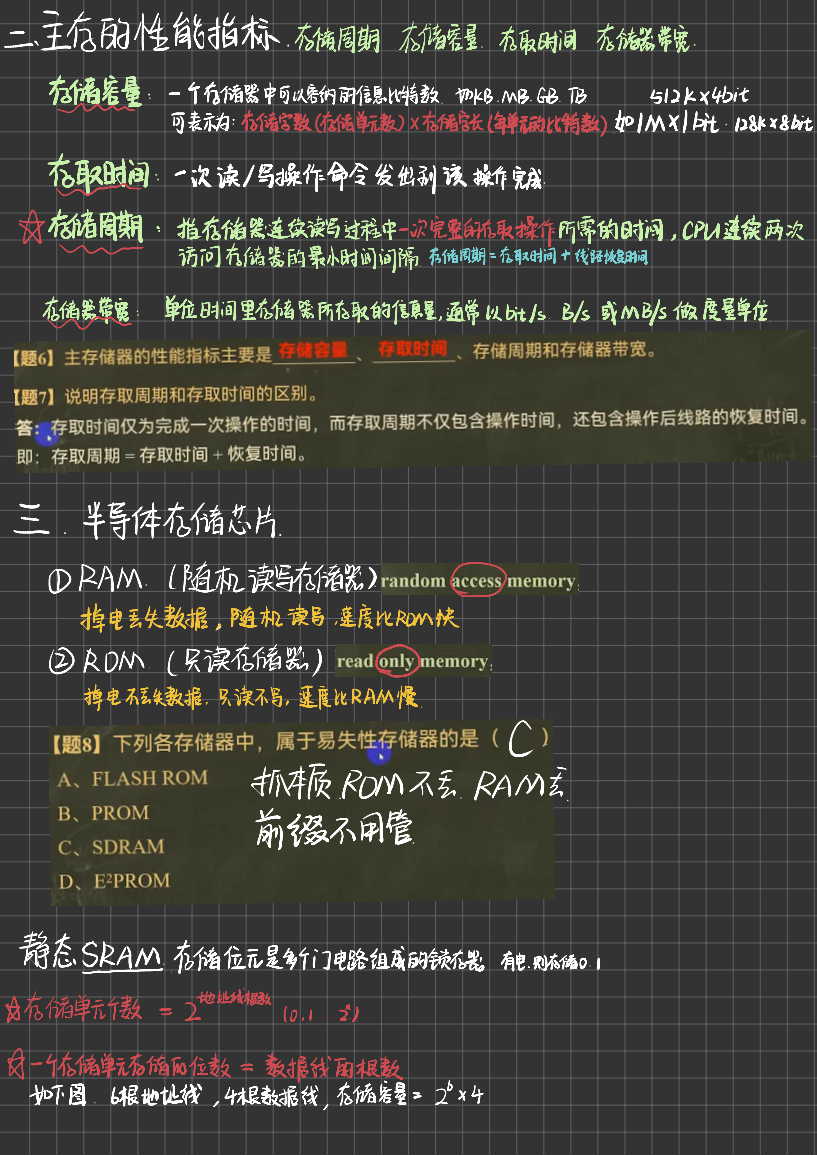 二、主存的性能指标.存储周期 存储容量 存取时间 存储器带宽.
存储容量：一个存储器中可以容纳的信息比特数. 如KB.MB.GB.TB 512K×4bit
可表示为：存储字数(存储单元数)×存储字长(每单元的比特数) 如1M×1bit.128K×8bit
存取时间：一次读/写操作命令发出到该操作完成.
☆存储周期：指存储器连续读写过程中一次完整的存取操作所需的时间,CPU连续两次
访问存储器的最小时间间隔. 存储周期=存取时间+线路恢复时间
存储器带宽：单位时间里存储器所存取的信息量,通常以bit/s. B/s 或MB/s做度量单位
【题6】主存储器的性能指标主要是 存储容量 、 存取时间 、存储周期和存储器带宽。
【题7】说明存取周期和存取时间的区别。
答：存取时间仅为完成一次操作的时间，而存取周期不仅包含操作时间，还包含操作后线路的恢复时间。
即：存取周期 = 存取时间 + 恢复时间。
三.半导体存储芯片.
①RAM.(随机读写存储器) random access memory,
掉电丢失数据,随机读写.速度比ROM快
②ROM.(只读存储器) read only memory,
掉电不丢失数据.只读不写,速度比RAM慢.
【题8】下列各存储器中，属于易失性存储器的是（ C ）
A、FLASH ROM
B、PROM
C、SDRAM
D、E²PROM
抓本质.ROM不丢.RAM丢.
前缀不用管.
静态SRAM.存储位元是多个门电路组成的锁存器. 有电.则存储0.1
☆存储单元个数 = 2^地址线根数 (0.1
☆一个存储单元存储的位数 = 数据线的根数
如下图. 6根地址线,4根数据线,存储容量= 2⁶×4